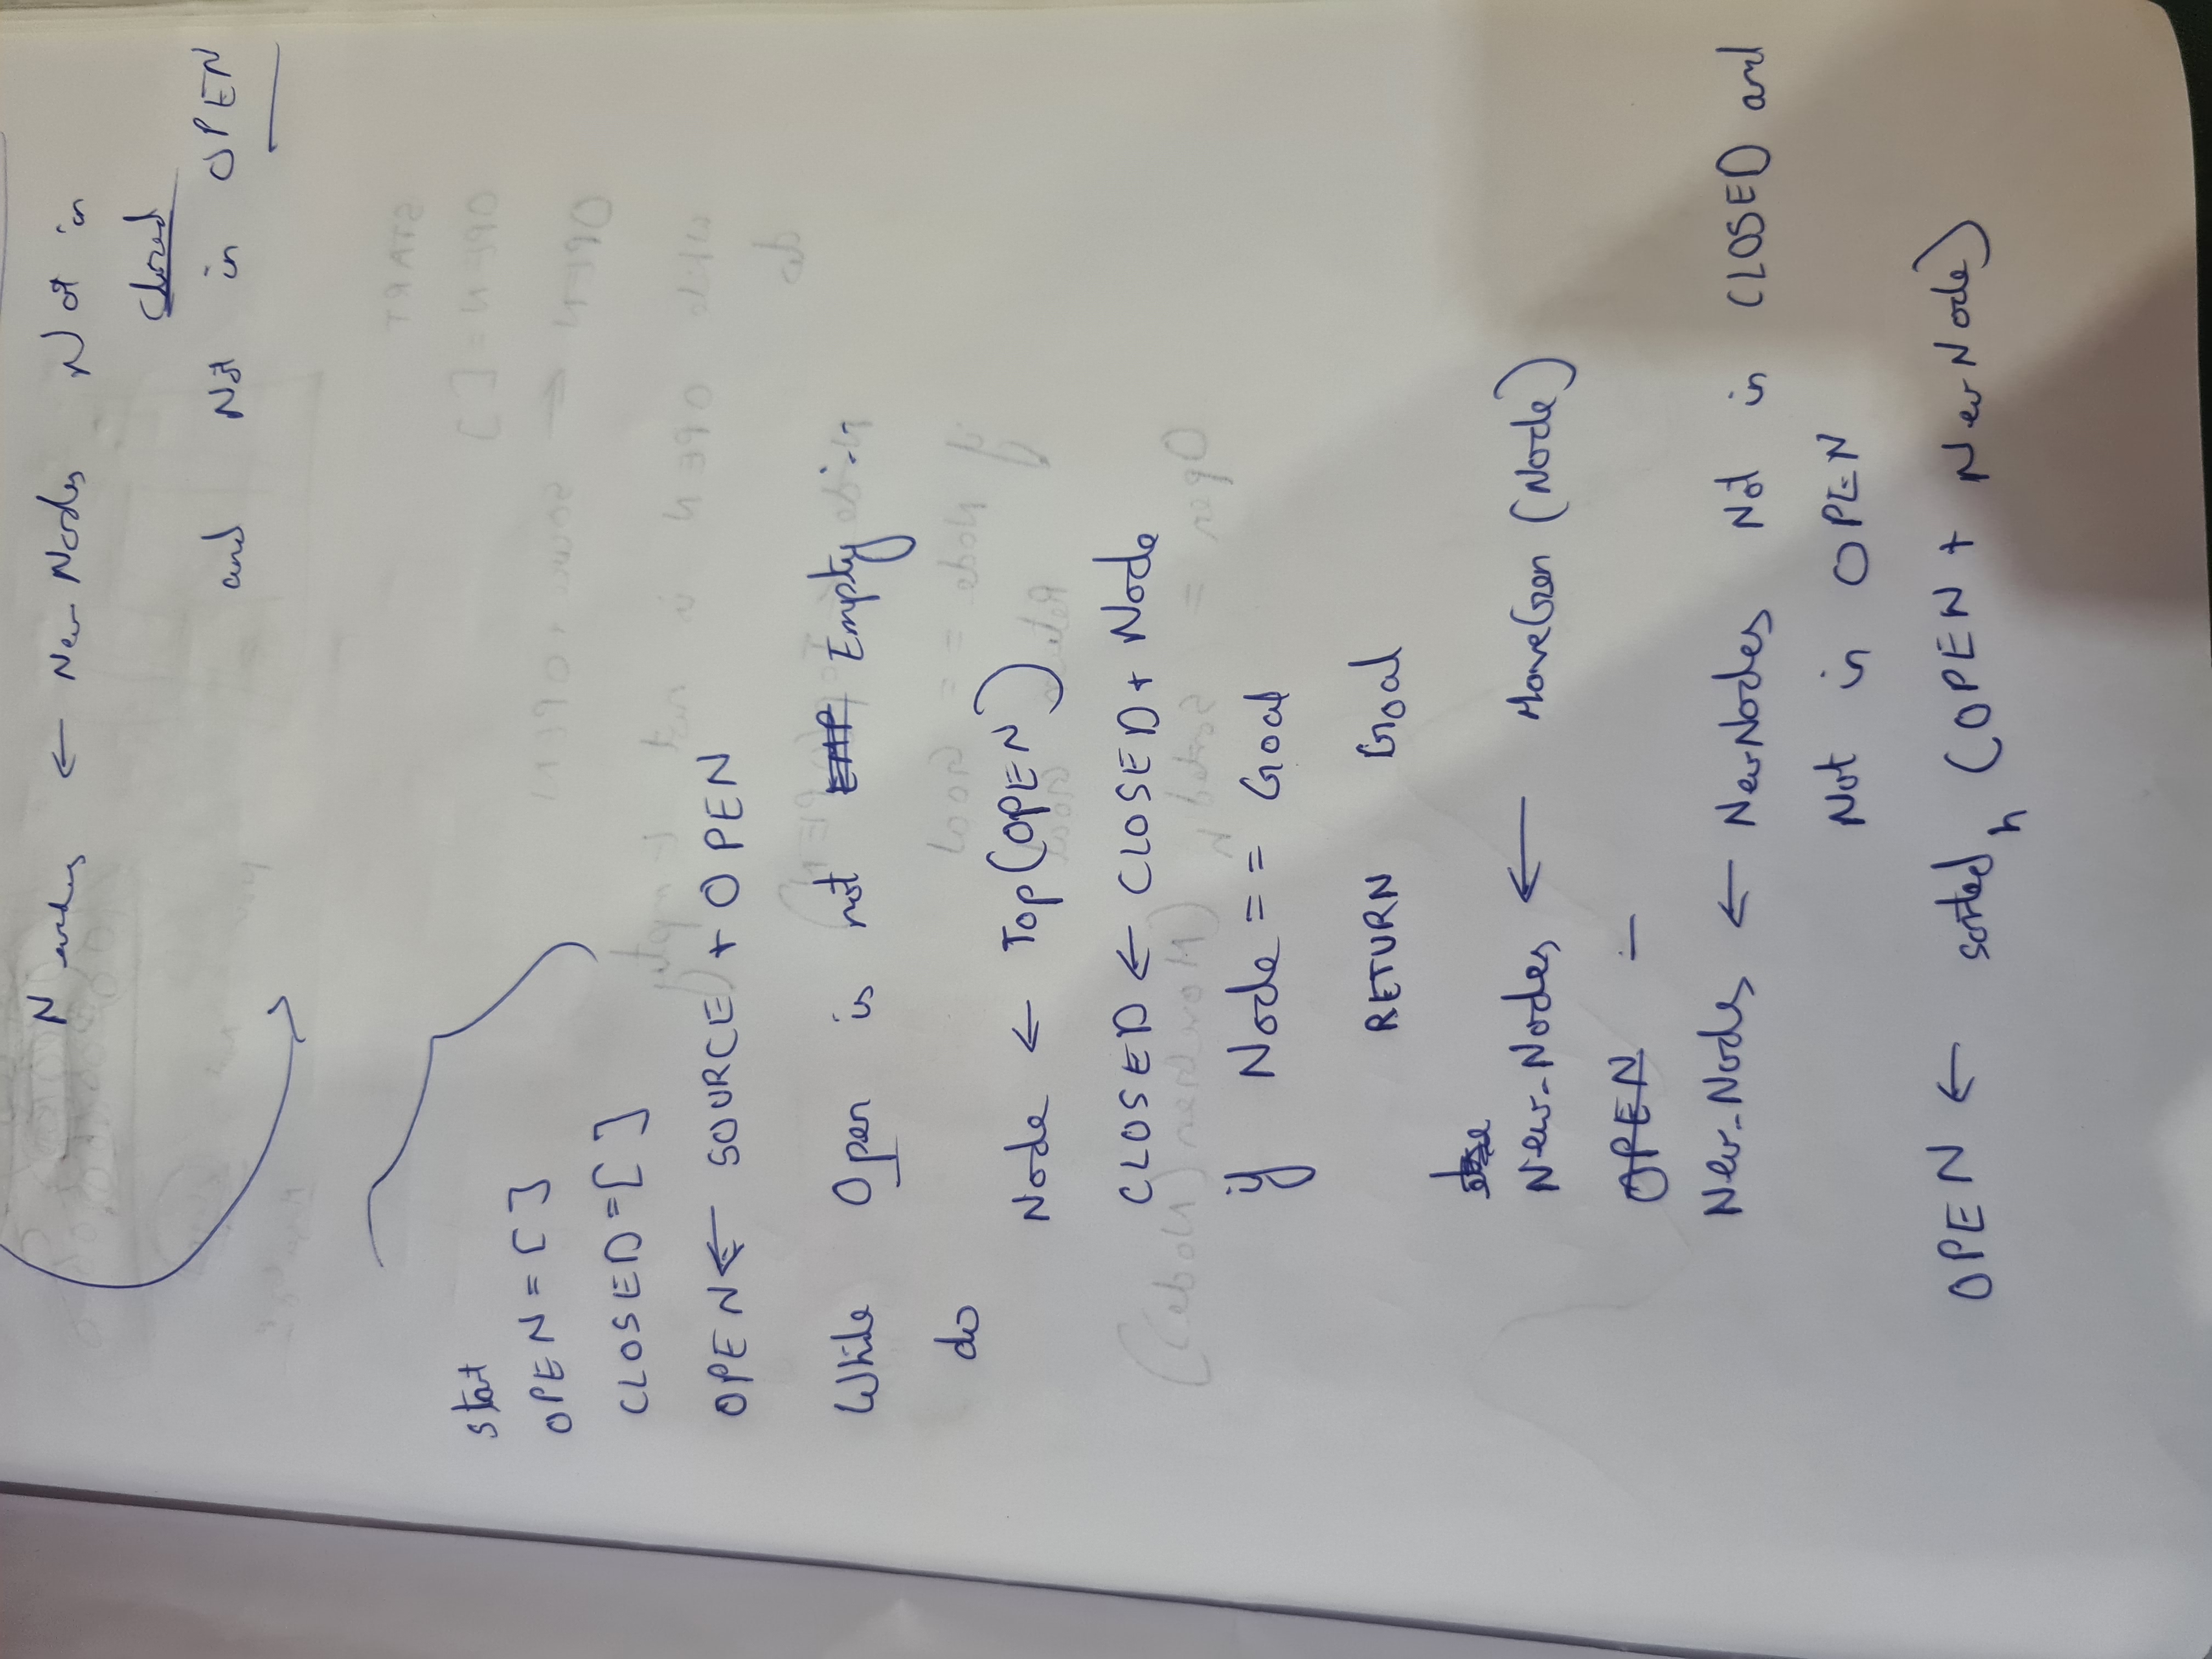 ← New Nodes Not in
Closed
and Not in OPEN
start
OPEN = [ ]
CLOSED = [ ]
OPEN ← SOURCE + OPEN
While Open is not EMP Empty :-
do
Node ← Top(OPEN)
CLOSED ← CLOSED + Node
if Node == Goal
RETURN Goal
else
New-Nodes ← MoveGen (Node)
OPEN –
New-Nodes ← NewNodes Not in CLOSED and
Not in OPEN
OPEN ← sorted h (OPEN + NewNode)